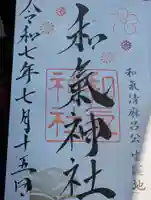 和氣清麻呂公生誕地
和氣神社
令和七年七月十五日